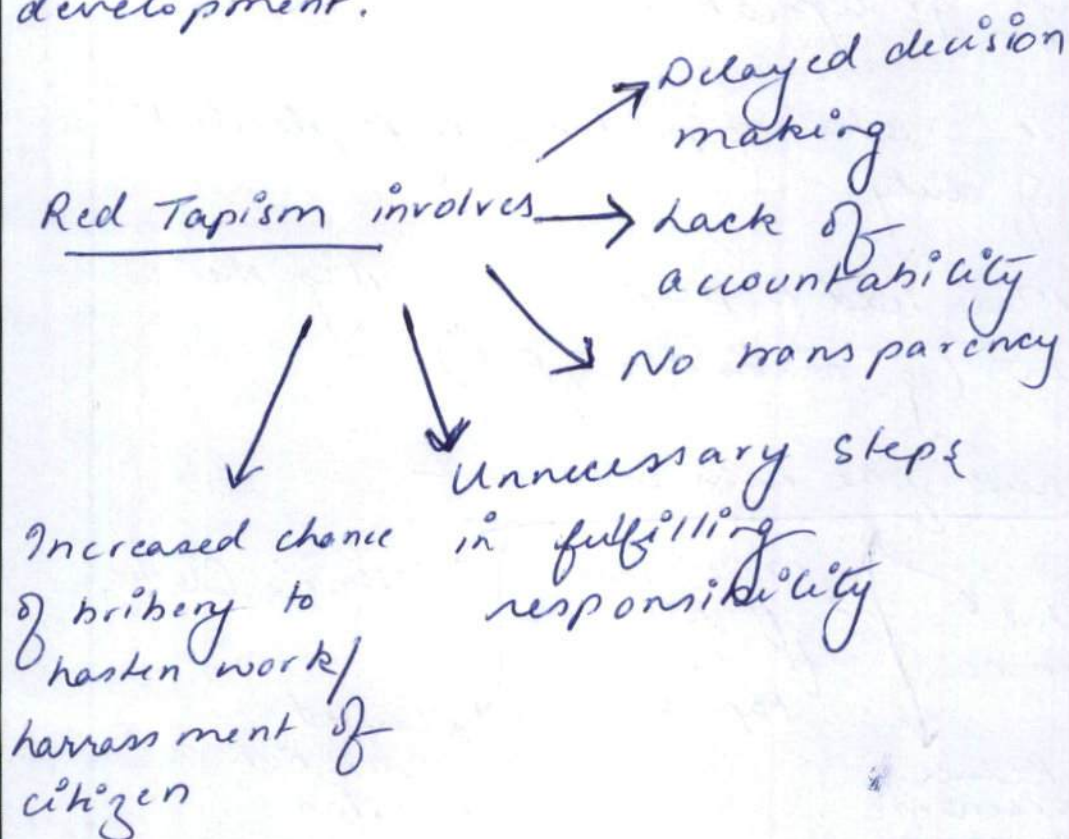 development.
Delayed decision
making
Red Tapism involves
Lack of
accountability
No transparency
Unnecessary steps
in fulfilling
responsibility
Increased chance
of bribery to
hasten work/
harrassment of
citizen